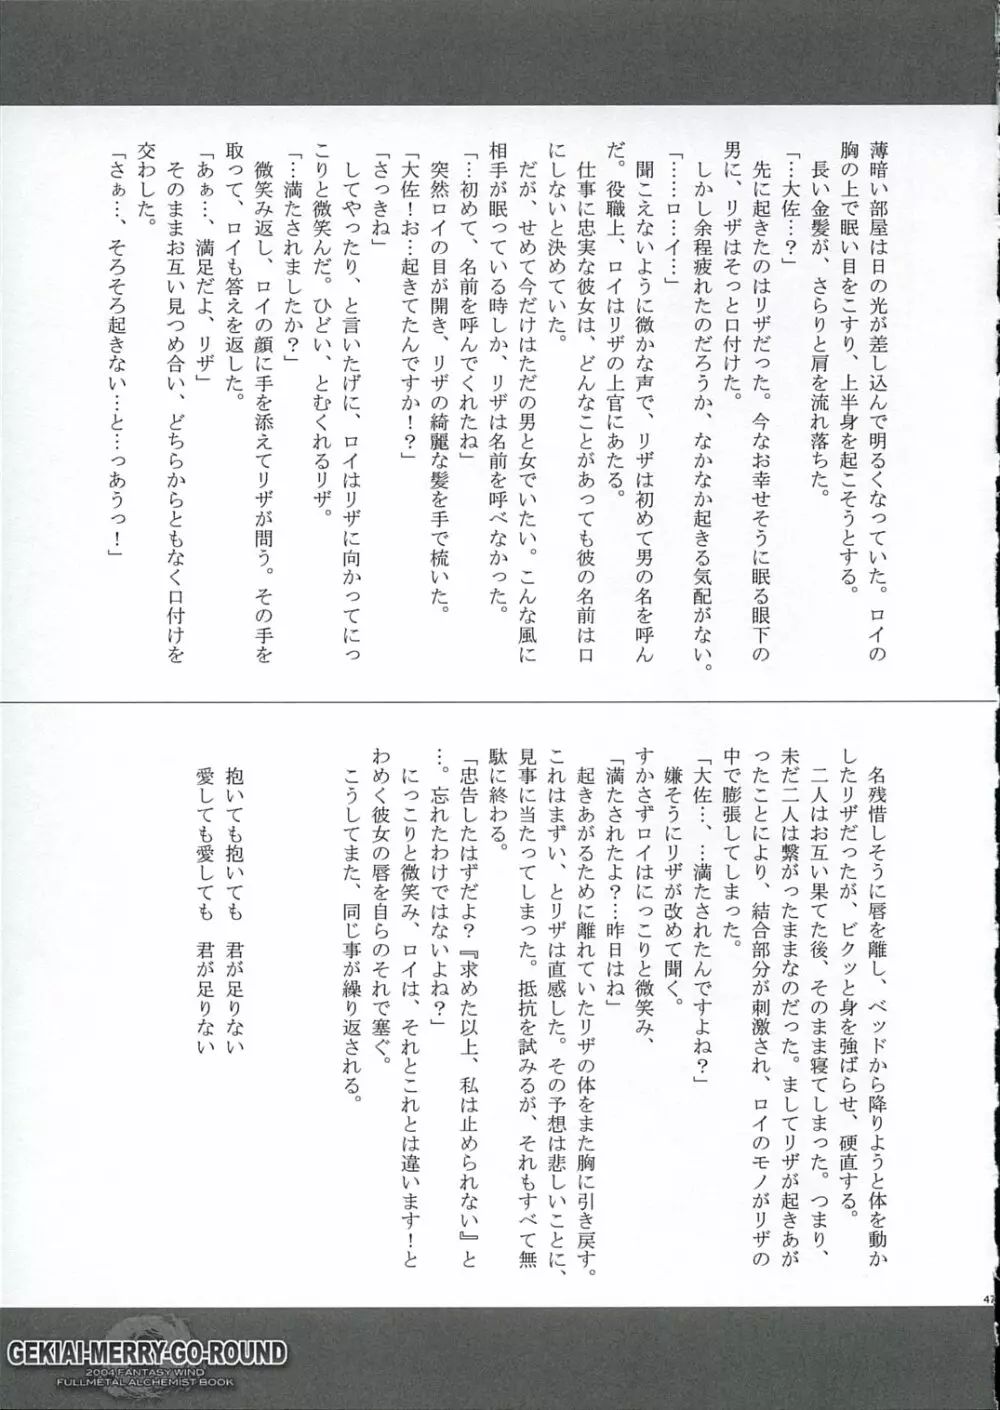 薄暗い部屋は日の光が差し込んで明るくなっていた。ロイの
胸の上で眠い目をこすり、上半身を起こそうとする。
長い金髪が、さらりと肩を流れ落ちた。
「…大佐…？」
先に起きたのはリザだった。今なお幸せそうに眠る眼下の
男に、リザはそっと口付けた。
しかし余程疲れたのだろうか、なかなか起きる気配がない。
「……ロ…イ…」
聞こえないように微かな声で、リザは初めて男の名を呼ん
だ。役職上、ロイはリザの上官にあたる。
仕事に忠実な彼女は、どんなことがあっても彼の名前は口
にしないと決めていた。
だが、せめて今だけはただの男と女でいたい。こんな風に
相手が眠っている時しか、リザは名前を呼べなかった。
「…初めて、名前を呼んでくれたね」
突然ロイの目が開き、リザの綺麗な髪を手で梳いた。
「大佐！お…起きてたんですか！？」
「さっきね」
してやったり、と言いたげに、ロイはリザに向かってにっ
こりと微笑んだ。ひどい、とむくれるリザ。
「…満たされましたか？」
微笑み返し、ロイの顔に手を添えてリザが問う。その手を
取って、ロイも答えを返した。
「あぁ…、満足だよ、リザ」
そのままお互い見つめ合い、どちらからともなく口付けを
交わした。
「さぁ…、そろそろ起きない…と…っあうっ！」
名残惜しそうに唇を離し、ベッドから降りようと体を動か
したリザだったが、ビクッと身を強ばらせ、硬直する。
二人はお互い果てた後、そのまま寝てしまった。つまり、
未だ二人は繋がったままなのだった。ましてリザが起きあが
ったことにより、結合部分が刺激され、ロイのモノがリザの
中で膨張してしまった。
「大佐…、…満たされたんですよね？」
嫌そうにリザが改めて聞く。
すかさずロイはにっこりと微笑み、
「満たされたよ？…昨日はね」
起きあがるために離れていたリザの体をまた胸に引き戻す。
これはまずい、とリザは直感した。その予想は悲しいことに、
見事に当たってしまった。抵抗を試みるが、それもすべて無
駄に終わる。
「忠告したはずだよ？『求めた以上、私は止められない』と
…。忘れたわけではないよね？」
にっこりと微笑み、ロイは、それとこれとは違います！と
わめく彼女の唇を自らのそれで塞ぐ。
こうしてまた、同じ事が繰り返される。
抱いても抱いても　君が足りない
愛しても愛しても　君が足りない
47
GEKIAI-MERRY-GO-ROUND
2004 FANTASY WIND
FULLMETAL ALCHEMIST BOOK